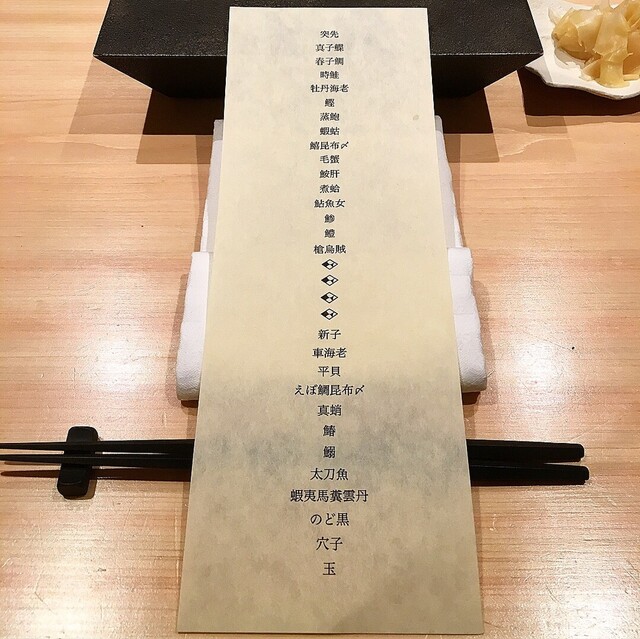 突先
真子鰈
春子鯛
時鮭
牡丹海老
鰹
蒸鮑
蝦蛄
鱚昆布〆
毛蟹
鮟肝
煮蛤
鮎魚女
鯵
鱧
槍烏賊
新子
車海老
平貝
えぼ鯛昆布〆
真蛸
鰆
鰯
太刀魚
蝦夷馬糞雲丹
のど黒
穴子
玉